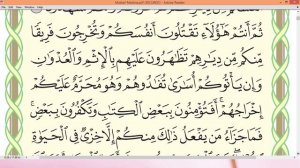 ثُمَّ أَنتُمْ هَٰٓؤُلَآءِ تَقْتُلُونَ أَنفُسَكُمْ وَتُخْرِجُونَ فَرِيقًا
مِّنكُم مِّن دِيَٰرِهِمْ تَظَٰهَرُونَ عَلَيْهِم بِٱلْإِثْمِ وَٱلْعُدْوَٰنِ
وَإِن يَأْتُوكُمْ أُسَٰرَىٰ تُفَٰدُوهُمْ وَهُوَ مُحَرَّمٌ عَلَيْكُمْ
إِخْرَاجُهُمْ ۚ أَفَتُؤْمِنُونَ بِبَعْضِ ٱلْكِتَٰبِ وَتَكْفُرُونَ بِبَعْضٍ ۚ
فَمَا جَزَآءُ مَن يَفْعَلُ ذَٰلِكَ مِنكُمْ إِلَّا خِزْيٌ فِى ٱلْحَيَوٰةِ